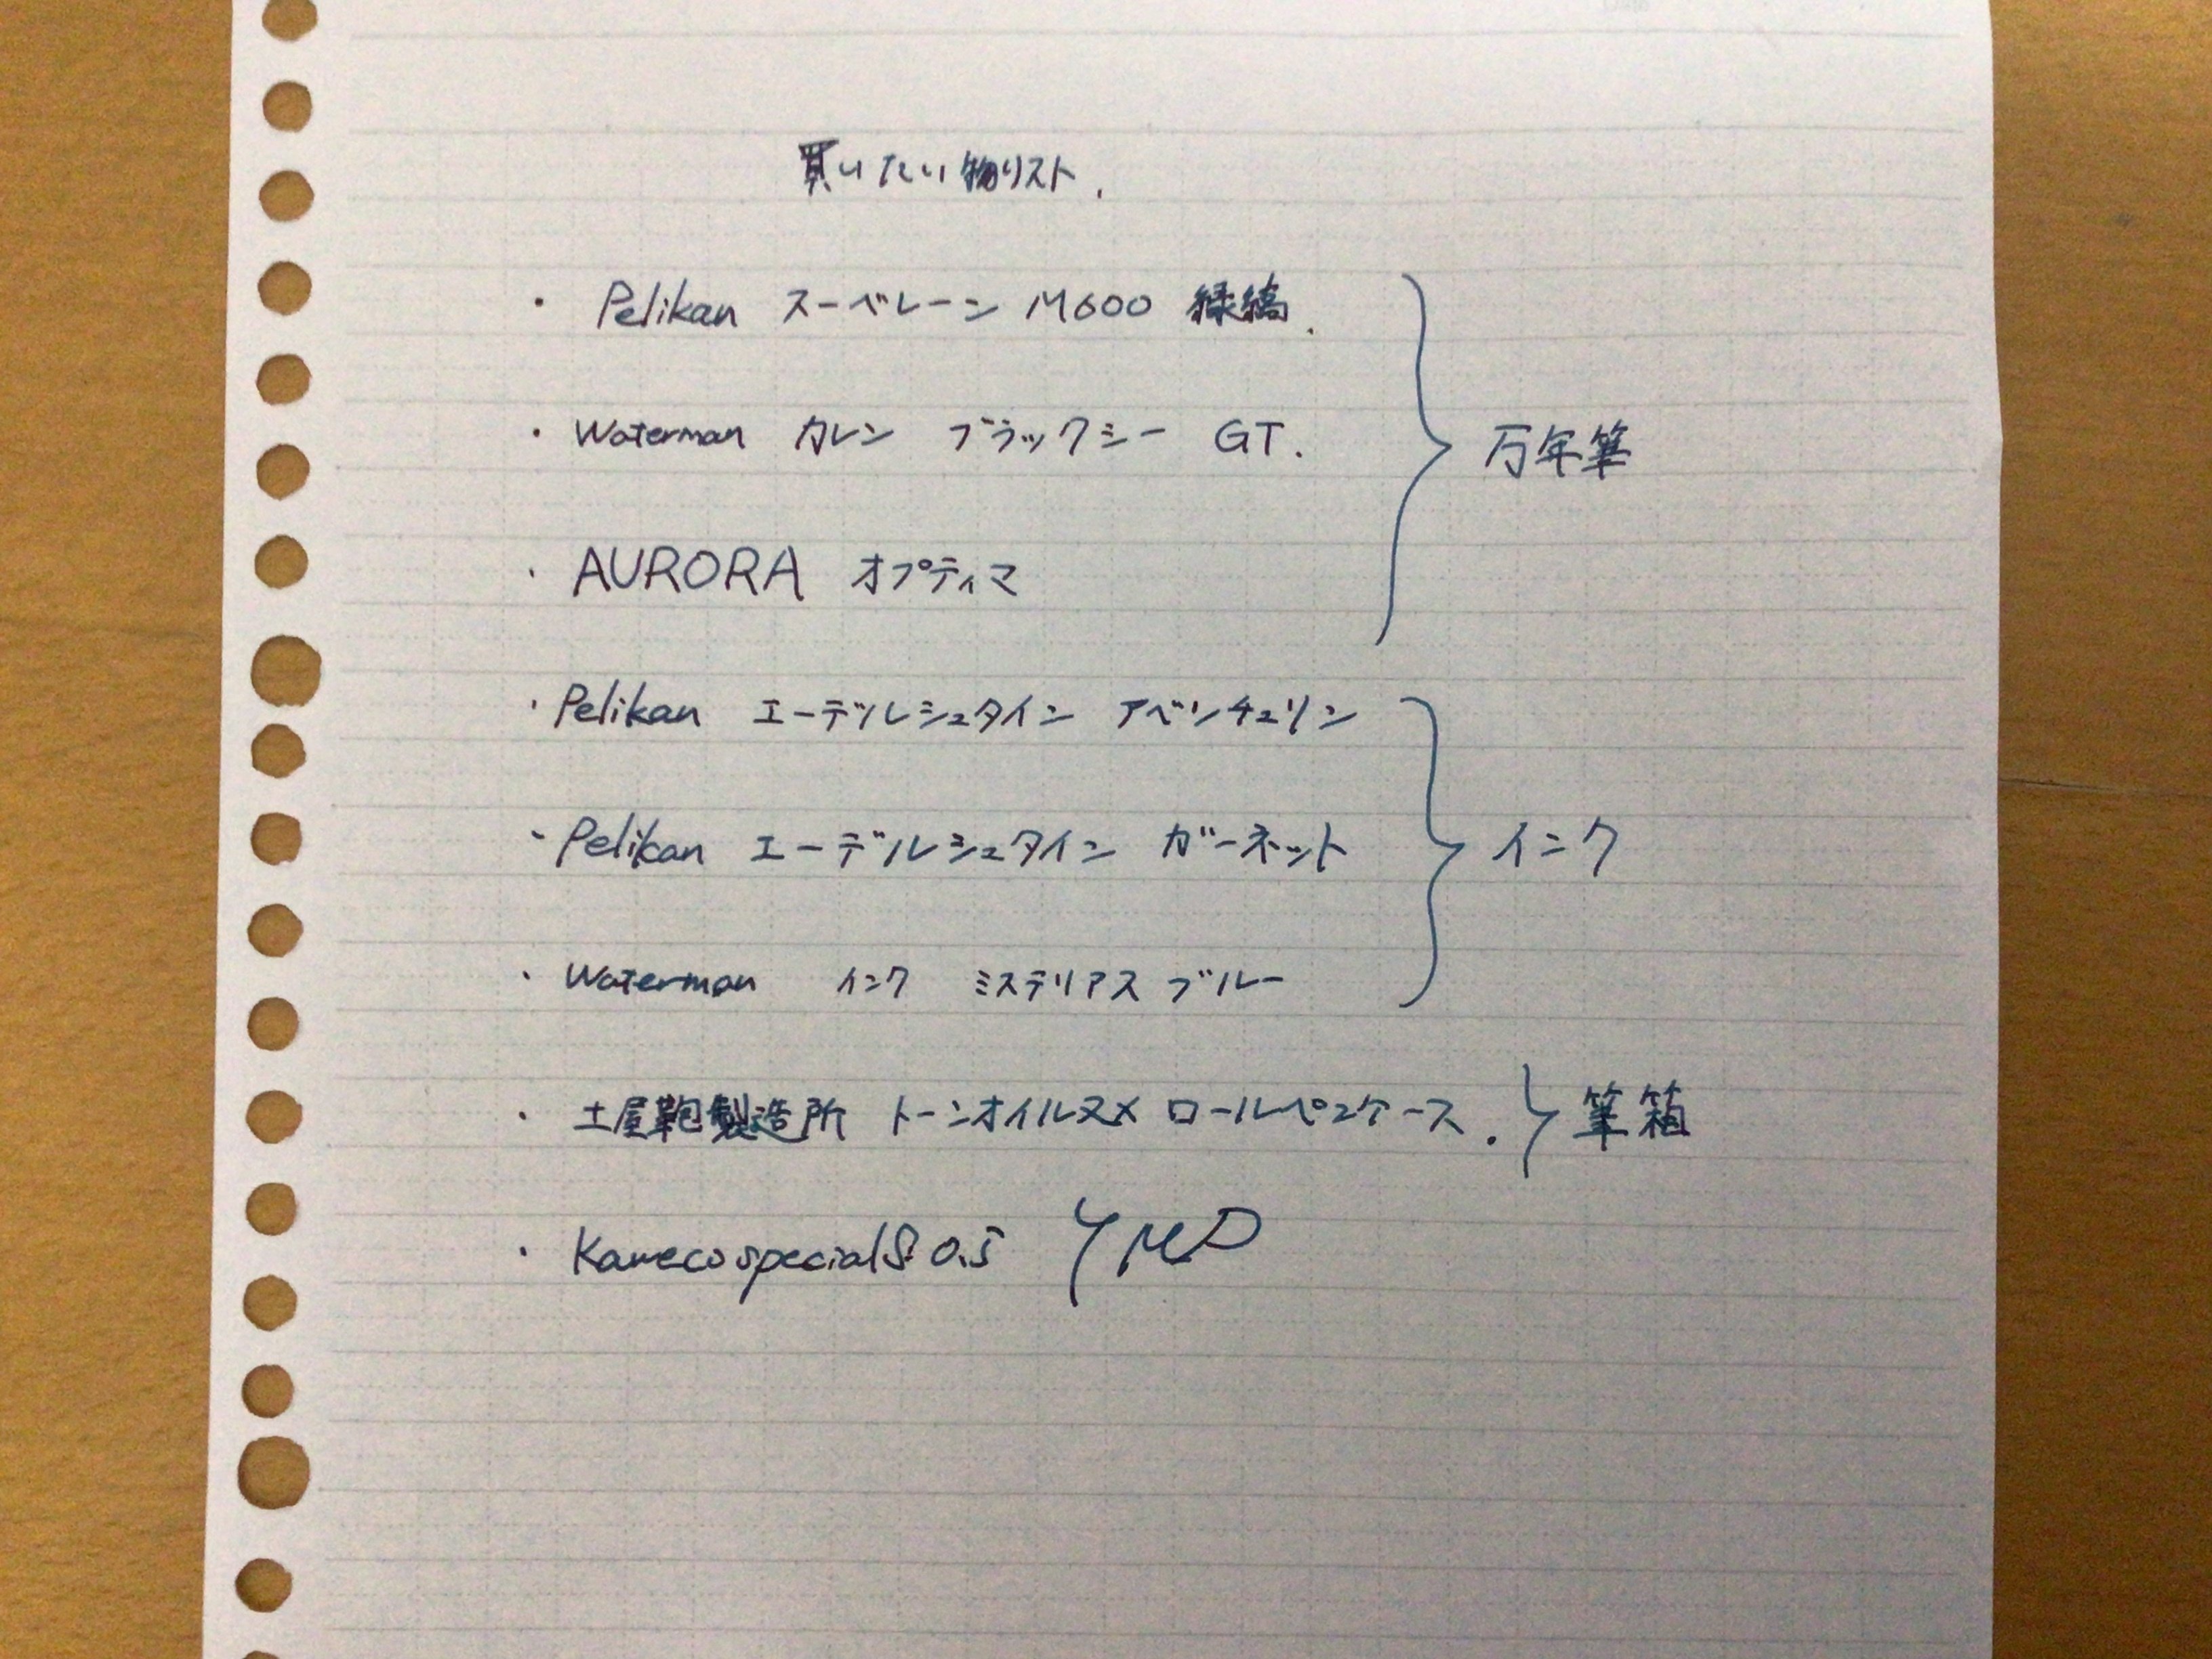 買いたい物リスト.
・ Pelikan スーベレーン M600 緑縞.
・ Waterman カレン ブラックシー GT.
・ AURORA オプティマ
万年筆
・ Pelikan エーデルシュタイン アベンチュリン
・ Pelikan エーデルシュタイン ガーネット
・ Waterman インク ミステリアス ブルー
インク
・ 土屋鞄製造所 トーンオイルヌメ ロールペンケース. 筆箱
・ Kawecospecial 0.5